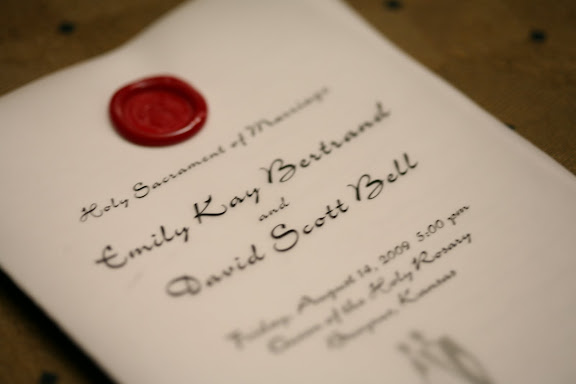 Holy Sacrament of Marriage
Emily Kay Bertrand
and
David Scott Bell
Friday, August 14, 2009 5:00 pm
Queen of the Holy Rosary
Kansas